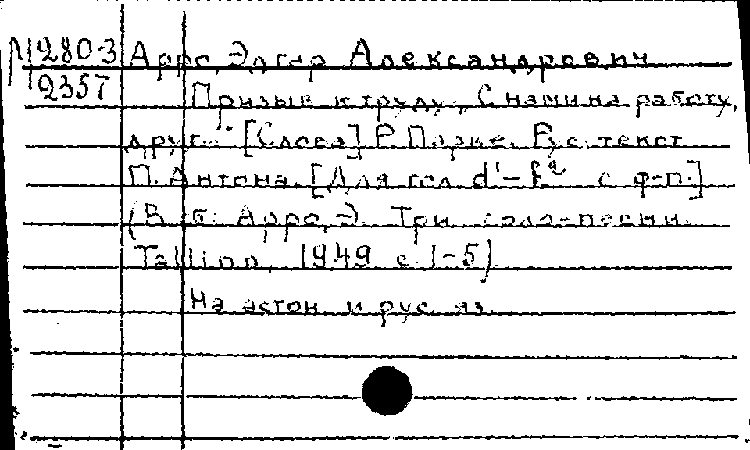 М280-3 Арро, Эдгар Александрович
2357 Призыв к труду. „С нами на работу,
друг..." [Слова] Р. Парве. Рус. текст
П. Антона. [Для гол. d¹-f² с ф-п.]
(В сб: Арро, Э. Три соло-песни.
Tallinn, 1949 с. 1-5)
На эстон. и рус. яз.